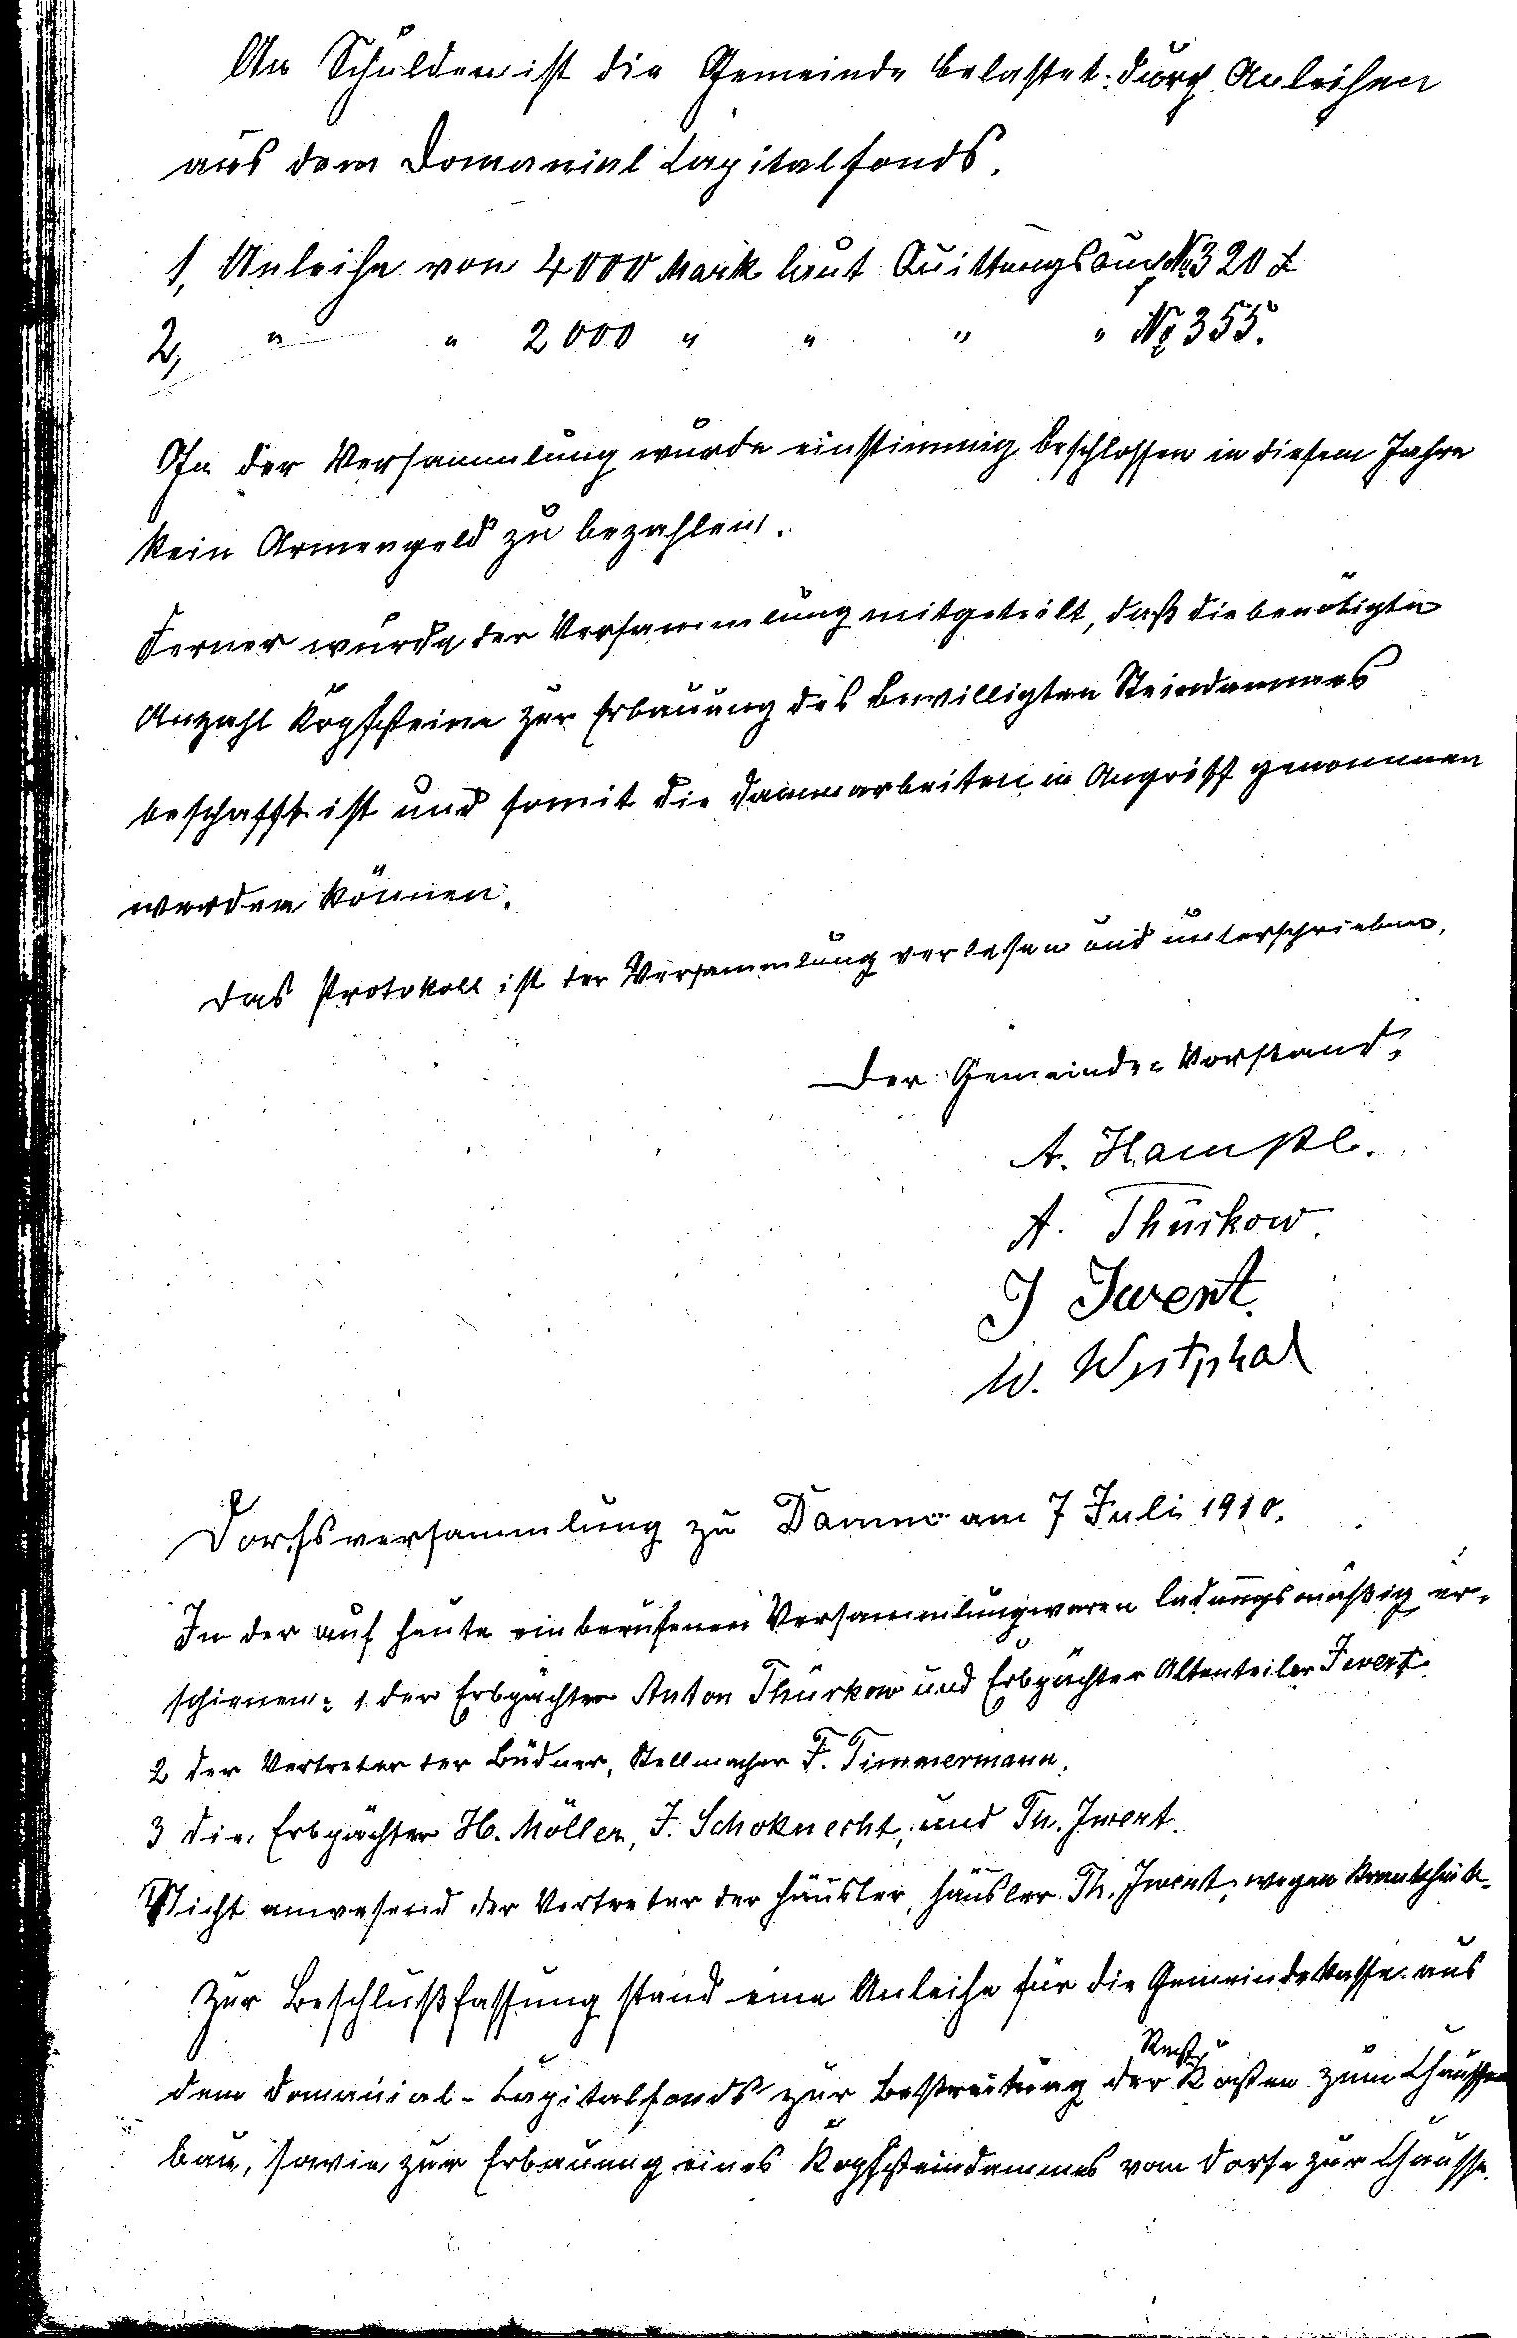 An Schulden ist die Gemeinde belastet: durch Anleihen
aus dem Domanial Capitalfonds.
1, Anleihe von 4000 Mark laut Quittungsbuch No 320
2, " " 2000 " " " " No 355.
In der Versammlung wurde einstimmig beschlossen in diesem Jahre
kein Armengeld zu bezahlen.
Ferner wurde der Versammlung mitgeteilt, daß die benötigte
Anzahl Kopfsteine zur Erbauung des bewilligten Steindammes
beschafft ist und somit die Dammarbeiten in Angriff genommen
werden können.
Das Protokoll ist der Versammlung verlesen und unterschrieben.
Der Gemeinde-Vorstand.
A.
A. Thürkow.
J Iwert.
W. Westphal
Dorfsversammlung zu Damm am 7 Juli 1910.
In der auf heute einberufenen Versammlung waren ladungsmäßig er-
schienen: 1 der Erbpächter Anton Thürkow und Erbpächter Altenteiler Iwert.
2 der Vertreter der Büdner, Stellmacher F. Timmermann.
3 die Erbpächter H. Möller, J. Schoknecht, und Th. Iwert.
Nicht anwesend der Vertreter der Häusler, Häusler Th. Iwert, wegen Krankheit.
Zur Beschlußfassung stand eine Anleihe für die Gemeindekasse aus
dem Domanial-Capitalfonds zur Bestreitung der Rest Kosten zum Chaussee
bau, sowie zur Erbauung eines Kopfsteindammes vom Dorfe zur Chausse.